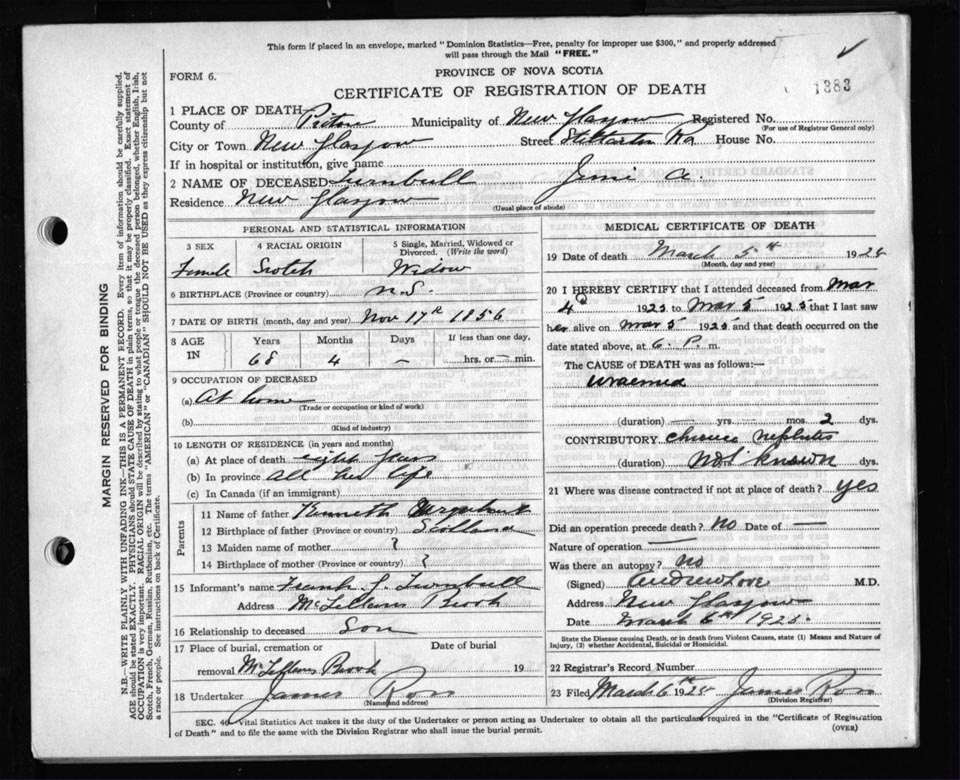 This form if placed in an envelope, marked "Dominion Statistics—Free, penalty for improper use $300," and properly addressed
will pass through the Mail "FREE."
FORM 6.
PROVINCE OF NOVA SCOTIA
CERTIFICATE OF REGISTRATION OF DEATH
1383
1 PLACE OF DEATH
County of Pictou Municipality of New Glasgow Registered No.
(For use of Registrar General only)
City or Town New Glasgow Street Stellarton Rd House No.
If in hospital or institution, give name
2 NAME OF DECEASED Turnbull A.
Residence New Glasgow
(Usual place of abode)
PERSONAL AND STATISTICAL INFORMATION
3 SEX 4 RACIAL ORIGIN 5 Single, Married, Widowed or Divorced. (Write the word)
Female Scotch Widow
6 BIRTHPLACE (Province or country) N.S.
7 DATE OF BIRTH (month, day and year) Nov 17th 1856
8 AGE IN Years Months Days If less than one day,
68 4 — hrs. or — min.
9 OCCUPATION OF DECEASED
(a) At home
(Trade or occupation or kind of work)
(b)
(Kind of industry)
10 LENGTH OF RESIDENCE (in years and months)
(a) At place of death eight years
(b) In province all her life
(c) In Canada (if an immigrant)
Parents
11 Name of father Kenneth
12 Birthplace of father (Province or country) Scotland
13 Maiden name of mother ?
14 Birthplace of mother (Province or country) ?
15 Informant's name Frank Turnbull
Address McLellans Brook
16 Relationship to deceased Son
17 Place of burial, cremation or Date of burial
removal McLellans Brook 19
18 Undertaker James Ross
(Name and address)
MEDICAL CERTIFICATE OF DEATH
19 Date of death March 5th 1925
(Month, day and year)
20 I HEREBY CERTIFY that I attended deceased from Mar
4 1925 to Mar 5 1925 that I last saw
her alive on Mar 5 1925 and that death occurred on
date stated above, at 6. P. m.
The CAUSE OF DEATH was as follows:—
Uraemia
(duration) yrs. mos. 2 dys.
CONTRIBUTORY Chronic nephritis
(duration) not known dys.
21 Where was disease contracted if not at place of death? yes
Did an operation precede death? no Date of —
Nature of operation —
Was there an autopsy? no
(Signed) Andrew Love M.D.
Address New Glasgow
Date March 6th 1925.
State the Disease causing Death, or in death from Violent Causes, state (1) Means and Nature of
Injury, (2) whether Accidental, Suicidal or Homicidal.
22 Registrar's Record Number
23 Filed March 6th 1925 James Ross
(Division Registrar)
SEC. 40 Vital Statistics Act makes it the duty of the Undertaker or person acting as Undertaker to obtain all the particulars required in the "Certificate of Registration
of Death" and to file the same with the Division Registrar who shall issue the burial permit.
(OVER)
MARGIN RESERVED FOR BINDING
N.B.—WRITE PLAINLY WITH UNFADING INK—THIS IS A PERMANENT RECORD. Every item of information should be carefully supplied.
AGE should be stated EXACTLY. PHYSICIANS should STATE CAUSE OF DEATH in plain terms, so that it may be properly classified. Exact statement of
OCCUPATION is very important. RACIAL ORIGIN will be described by stating to what people or tongue the deceased person belonged, whether English, Irish,
Scotch, French, German, Russian, Ruthenian, etc. The terms "AMERICAN" or "CANADIAN" SHOULD NOT BE USED as they express citizenship but not
a race or people. See instructions on back of Certificate.